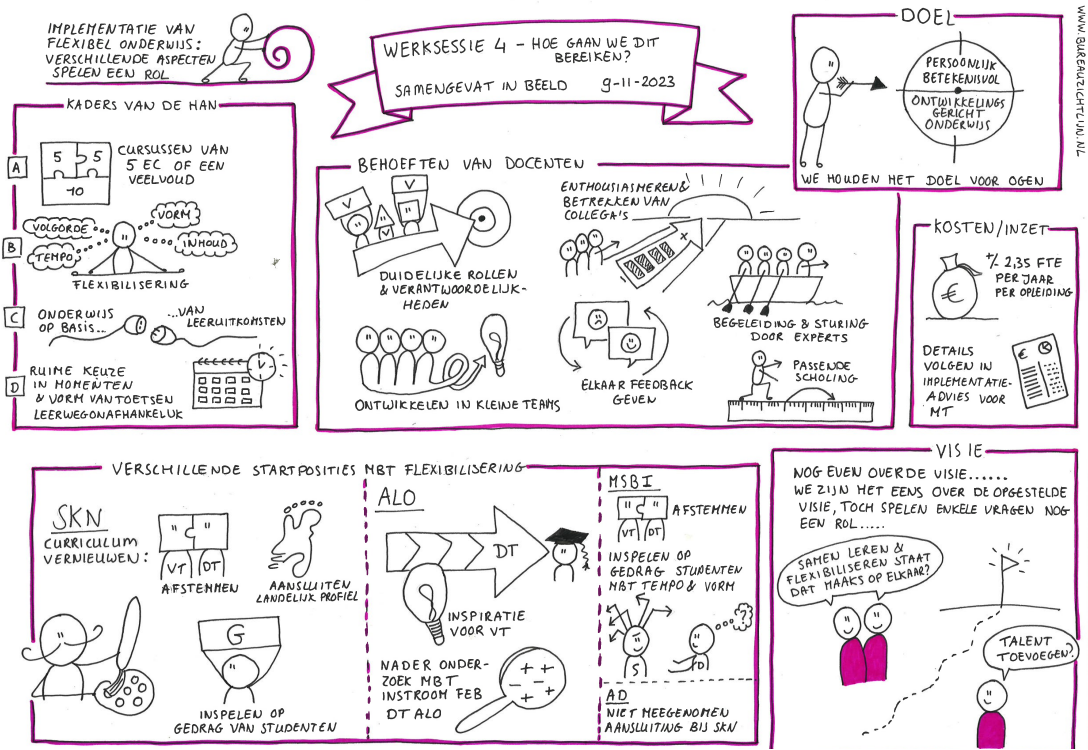 IMPLEMENTATIE VAN
FLEXIBEL ONDERWIJS:
VERSCHILLENDE ASPECTEN
SPELEN EEN ROL
WERKSESSIE 4 - HOE GAAN WE DIT
BEREIKEN?
SAMENGEVAT IN BEELD 9-11-2023
DOEL
PERSOONLIJK
BETEKENISVOL
ONTWIKKELINGS
GERICHT
ONDERWIJS
WE HOUDEN HET DOEL VOOR OGEN
WWW.BUREAUZICHTLIJN.NL
KADERS VAN DE HAN
A
5 5
10
CURSUSSEN VAN
5 EC OF EEN
VEELVOUD
B
VOLGORDE
VORM
TEMPO
INHOUD
FLEXIBILISERING
C
ONDERWIJS
OP BASIS...
...VAN
LEERUITKOMSTEN
D
RUIME KEUZE
IN MOMENTEN
& VORM VAN TOETSEN
LEERWEGONAFHANKELIJK
V
BEHOEFTEN VAN DOCENTEN
V
V
V
DUIDELIJKE ROLLEN
& VERANTWOORDELIJK-
HEDEN
ENTHOUSIASMEREN &
BETREKKEN VAN
COLLEGA'S
+
-
BEGELEIDING & STURING
DOOR EXPERTS
ONTWIKKELEN IN KLEINE TEAMS
ELKAAR FEEDBACK
GEVEN
PASSENDE
SCHOLING
KOSTEN/INZET
€
+/- 2,35 FTE
PER JAAR
PER OPLEIDING
DETAILS
VOLGEN IN
IMPLEMENTATIE-
ADVIES VOOR
MT
€
VERSCHILLENDE STARTPOSITIES MBT FLEXIBILISERING
SKN
CURRICULUM
VERNIEUWEN:
" "
VT DT
AFSTEMMEN
AANSLUITEN
LANDELIJK PROFIEL
G
INSPELEN OP
GEDRAG VAN STUDENTEN
ALO
DT
INSPIRATIE
VOOR VT
NADER ONDER-
ZOEK MBT
INSTROOM FEB
DT ALO
+ +
- - -
+ +
MSBI
" "
VT DT
AFSTEMMEN
INSPELEN OP
GEDRAG STUDENTEN
MBT TEMPO & VORM
?
S
D
AD
NIET MEEGENOMEN
AANSLUITING BIJ SKN
VISIE
NOG EVEN OVER DE VISIE......
WE ZIJN HET EENS OVER DE OPGESTELDE
VISIE, TOCH SPELEN ENKELE VRAGEN NOG
EEN ROL.....
SAMEN LEREN &
FLEXIBILISEREN STAAT
DAT HAAKS OP ELKAAR?
TALENT
TOEVOEGEN?